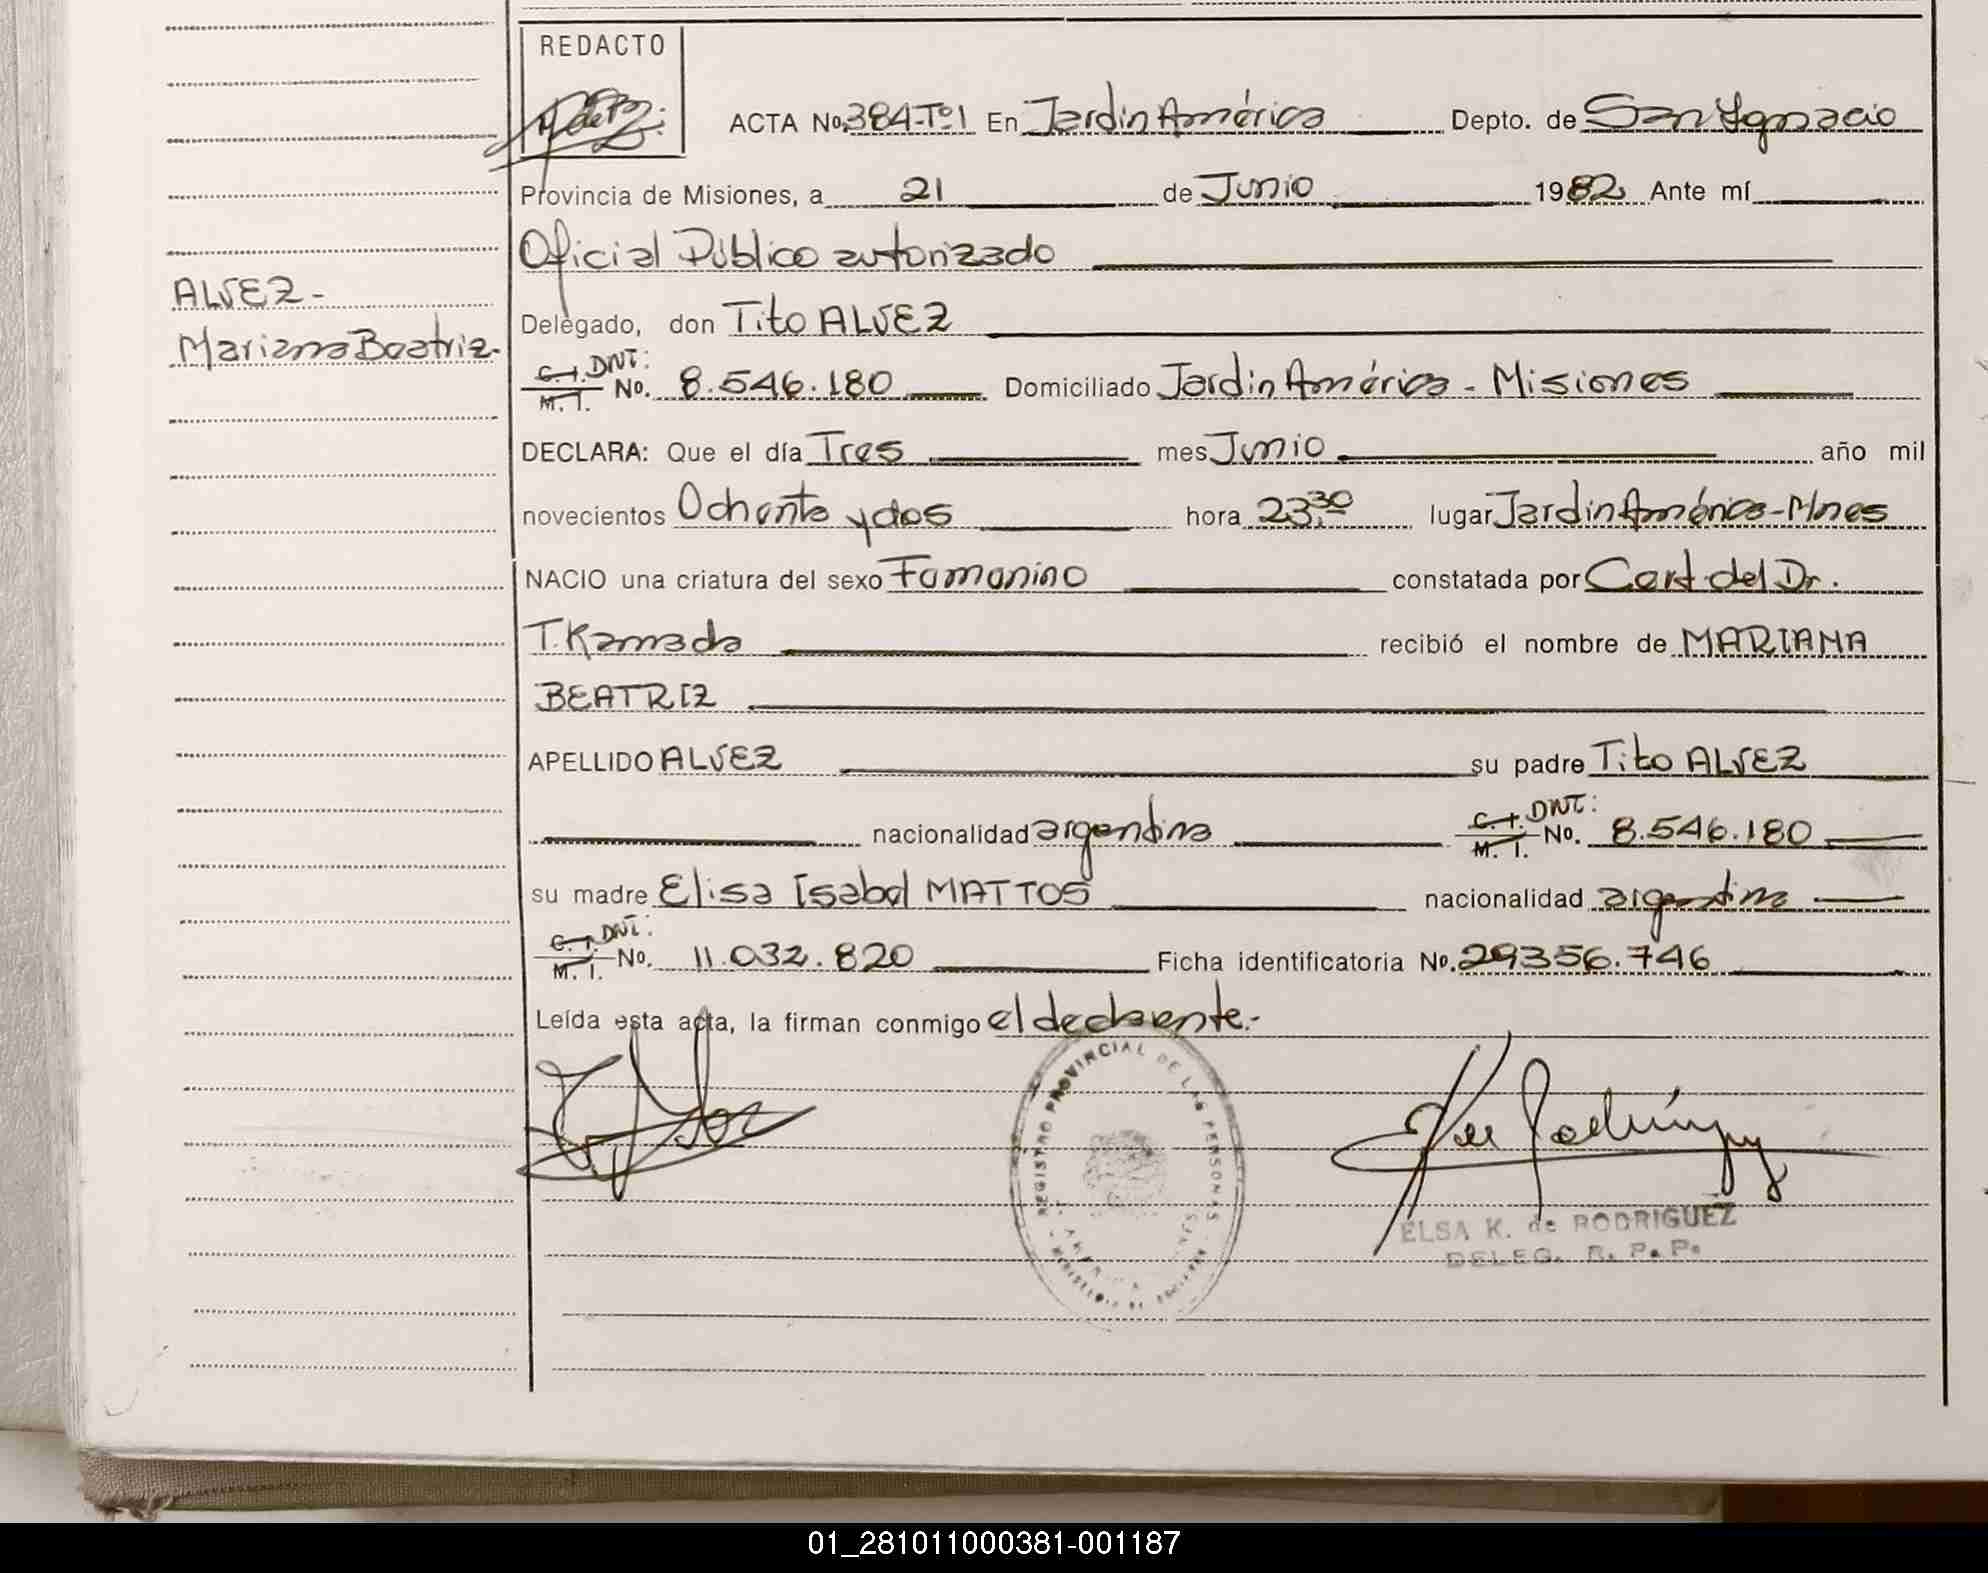 REDACTO
ACTA No. 384-Tº1 En Jardin América Depto. de San Ygnacio
Provincia de Misiones, a 21 de Junio 1982 Ante mí
Oficial Público autorizado
ALVEZ-
Mariana Beatriz-
Delegado, don Tito ALVEZ
C. I. DNI:
M. I. No. 8.546.180 Domiciliado Jardin América - Misiones
DECLARA: Que el día Tres mes Junio año mil
novecientos Ochenta y dos hora 23:30 lugar Jardin América-Mnes
NACIO una criatura del sexo Femenino constatada por Cert. del Dr.
T. Kamada recibió el nombre de MARIANA
BEATRIZ
APELLIDO ALVEZ su padre Tito ALVEZ
nacionalidad argentina C. I. DNI:
M. I. No. 8.546.180
su madre Elisa Isabel MATTOS nacionalidad argentina
C. I. DNI:
M. I. No. 11.032.820 Ficha identificatoria No. 29356.746
Leída esta acta, la firman conmigo el declarante.-
REGISTRO PROVINCIAL DE LAS PERSONAS
ELSA K. de RODRIGUEZ
DELEG. R. P. P.
01_281011000381-001187